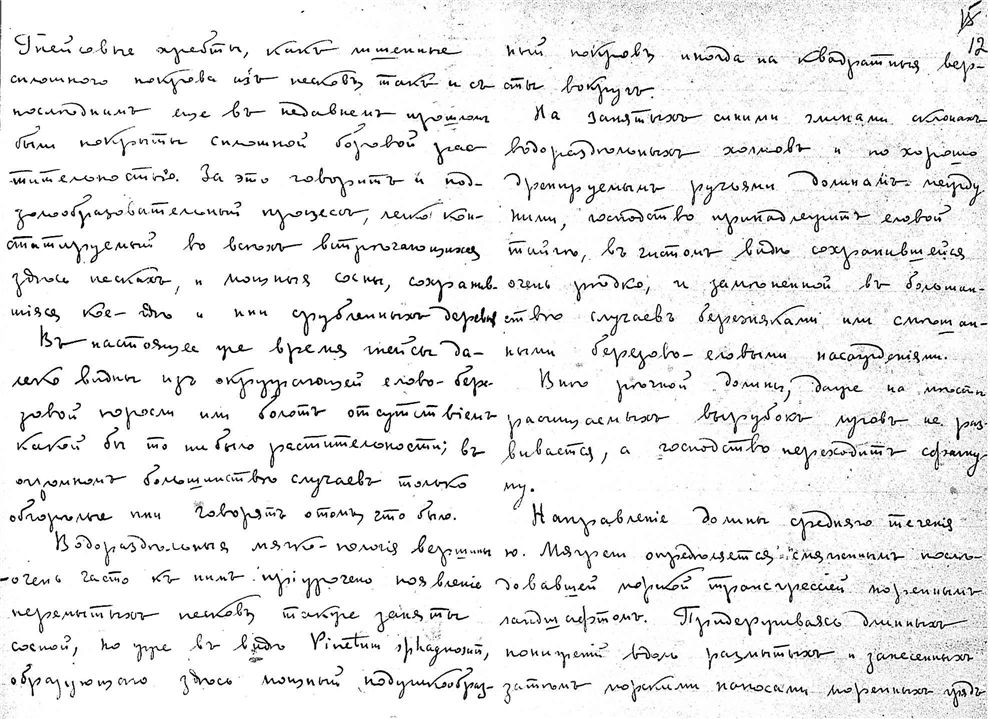 Гнейсовые хребты, какъ лишенные
сплошного покрова изъ песковъ такъ и съ
последнимъ еще въ недавнемъ прошломъ
были покрыты сплошной боровой рас
тительностью. За это говоритъ и под-
золообразовательный процессъ, легко кон-
статируемый во всѣхъ встрѣчающихся
здѣсь пескахъ, и мощныя сосны, сохранив-
шіяся кое-гдѣ и пни срубленныхъ деревьев
Въ настоящее же время гнейсы да-
леко видны изъ окружающей елово-бере-
зовой поросли или болотъ отсутствіемъ
какой бы то ни было растительности; въ
огромномъ большинствѣ случаевъ только
обгорѣлые пни говорятъ о томъ что было.
Водораздѣльныя мягко-пологія вершины
очень часто къ нимъ пріурочено появленіе
перемытыхъ песковъ также заняты
сосной, но уже въ видѣ Pinetum sphagnosum,
образующаго здѣсь мощный подушкообраз-
12
ный покровъ иногда на квадратныя вер-
сты вокругъ.
На занятыхъ синими глинами склонахъ
водораздѣльныхъ холмовъ и по хорошо
дренируемымъ ручьями долинамъ между
ними, господство принадлежитъ еловой
тайгѣ, въ чистомъ видѣ сохранившейся
очень рѣдко, и замѣненной въ большин-
ствѣ случаевъ березняками или смѣшан-
ными березово-еловыми насажденіями.
Внѣ рѣчной долины, даже на мѣстѣ
расчищаемыхъ вырубокъ луговъ не раз-
вивается, а господство переходитъ сфагну-
му.
Направленіе долины средняго теченія
ю. Мягрет опредѣляется смягченнымъ послѣ-
довавшей морской трансгрессіей мореннымъ
ландшафтомъ. Придерживаясь длинныхъ
пониженій вдоль размытыхъ и занесенныхъ
затѣмъ морскими наносами моренныхъ грядъ